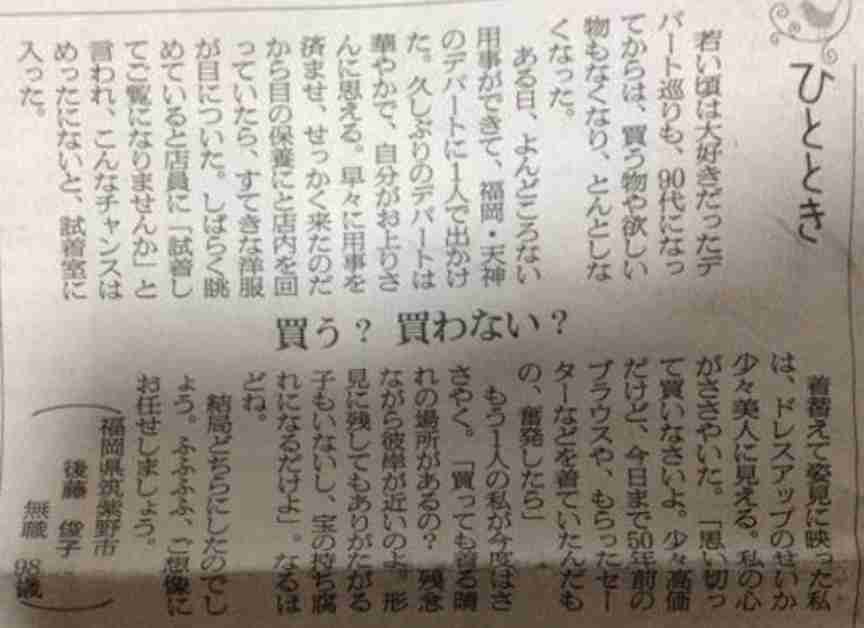 ひととき
買う？ 買わない？
若い頃は大好きだったデ
パート巡りも、90代になっ
てからは、買う物や欲しい
物もなくなり、とんとしな
くなった。
ある日、よんどころない
用事ができて、福岡・天神
のデパートに1人で出かけ
た。久しぶりのデパートは
華やかで、自分がお上りさ
んに思える。早々に用事を
済ませ、せっかく来たのだ
から目の保養にと店内を回
っていたら、すてきな洋服
が目についた。しばらく眺
めていると店員に「試着し
てご覧になりませんか」と
言われ、こんなチャンスは
めったにないと、試着室に
入った。
着替えて姿見に映った私
は、ドレスアップのせいか
少々美人に見える。私の心
がささやいた。「思い切っ
て買いなさいよ。少々高価
だけど、今日まで50年前の
ブラウスや、もらったセー
ターなどを着ていたんだも
の、奮発したら」
もう1人の私が今度はさ
さやく。「買っても着る晴
れの場所があるの？ 残念
ながら彼岸が近いのよ。形
見に残してもありがたがる
子もいないし、宝の持ち腐
れになるだけよ」。なるほ
どね。
結局どちらにしたのでし
ょう。ふふふふ、ご想像に
お任せしましょう。
福岡県筑紫野市
後藤 俊子
無職 98歳